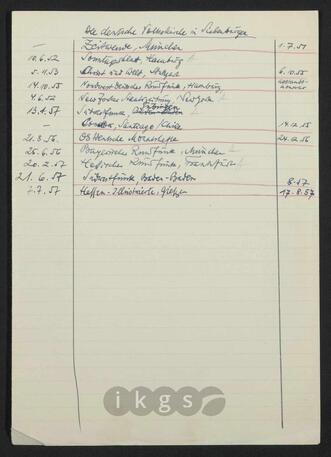 Die deutsche Volkskirche in Siebenbürgen
— Zeitwende, München 1.7.51
10.6.52 Sonntagsblatt, Hamburg
5.4.53 Christ und Welt, Stuttgart 6.10.55
14.10.55 Nordwestdeutscher Rundfunk, Hamburg
4.6.52 New Yorker Staatszeitung, New York
13.4.57 Südwestfunk, Tübingen
— Santiago/Chile 14.12.55
21.3.56 Ostdeutsche Monatshefte 24.2.56
25.6.56 Bayerischer Rundfunk, München
20.2.57 Hessischer Rundfunk, Frankfurt
21.6.57 Südwestfunk, Baden-Baden 8.57
2.7.57 Hessen-Illustrierte, Gießen 17.8.57
ikgs